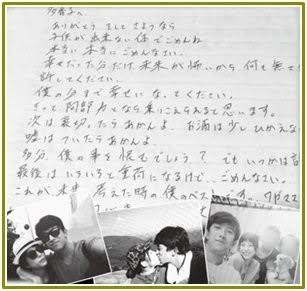 多香子へ
ありがとう そして さようなら
子供が出来ない体でごめんね
本当に 本当に ごめんなさい。
幸せだった分だけ 未来が怖いから 何も無
許してください。
僕の分まで幸せになってください。
きっと 阿野君となら乗りこえられると思います。
次は裏切ったらあかんよ お酒は少しひかえな
嘘はついたらあかんよ。
多分、僕の事を恨むでしょう? でもいつかは
最後は いろいろと重荷になるけど、ごめんなさい。
これが、未来 考えた時の僕のベス です。